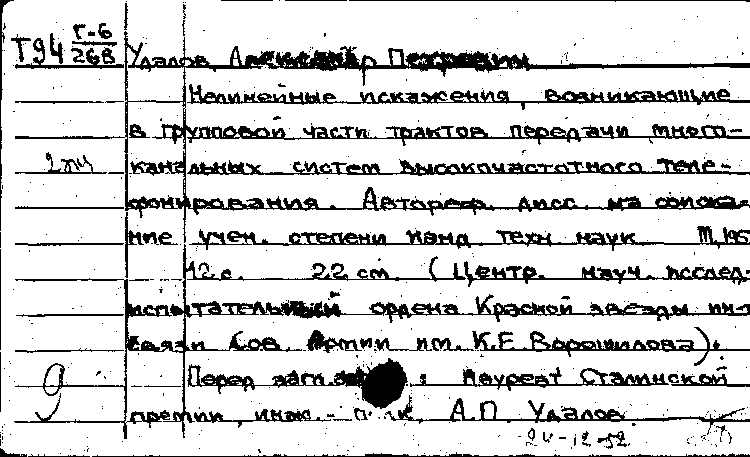 Т94 Г-6
268
Удалов, Александр Петрович
Нелинейные искажения, возникающие
в групповой части трактов передачи много-
2 экз
канальных систем высокочастотного теле-
фонирования. Автореф. дисс. на соиска-
ние учен. степени канд. техн. наук М, 195
12 с. 22 см. (Центр. науч. исслед.
испытательный ордена Красной звезды ин-т
связи Сов. Армии им. К.Е. Ворошилова).
Перед загл. : лауреат Сталинской
9
премии, инж.- А.П. Удалов.
24-12-52